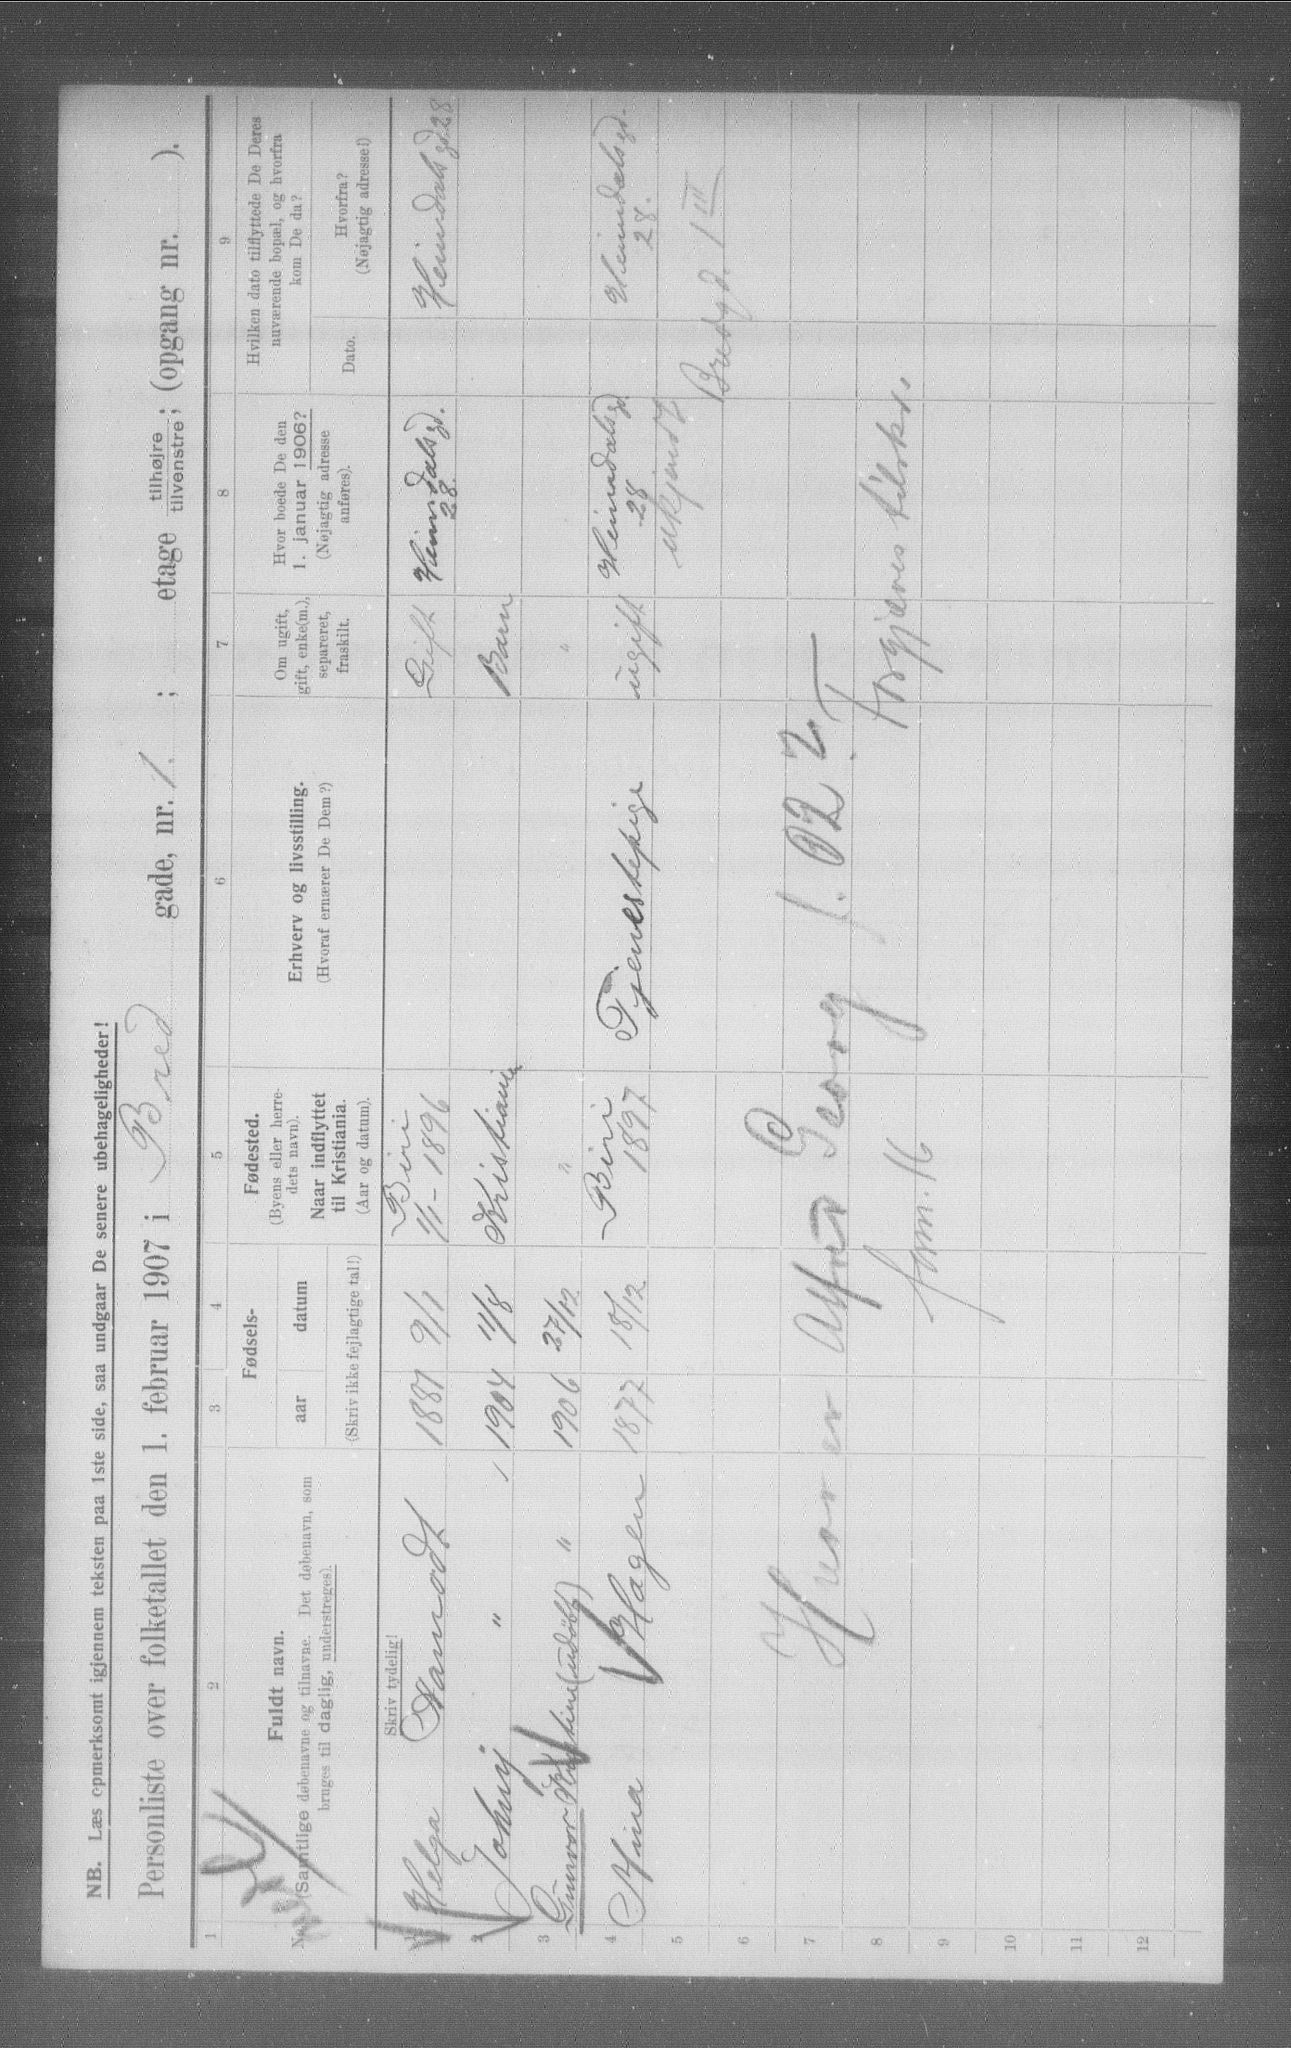 NB. Læs opmerksomt igjennem teksten paa 1ste side, saa undgaar De senere ubehageligheder!
Personliste over folketallet den 1. februar 1907 i Bred gade, nr. 1. ; etage tilhøjre tilvenstre; (opgang nr. ).
1 2 3 4 5 6 7 8 9
Fuldt navn.
(Samtlige døbenavne og tilnavne. Det døbenavn, som
bruges til daglig, understreges).
Skriv tydelig!
Fødsels-
aar datum
(Skriv ikke fejlagtige tal!)
Fødested.
(Byens eller herre-
dets navn).
Naar indflyttet
til Kristiania.
(Aar og datum).
Erhverv og livsstilling.
(Hvoraf ernærer De Dem?)
Om ugift,
gift, enke(m.),
separeret,
fraskilt.
Hvor boede De den
1. januar 1906?
(Nøjagtig adresse
anføres).
Hvilken dato tilflyttede De Deres
nuværende bopæl, og hvorfra
kom De da?
Dato.
Hvorfra?
(Nøjagtig adresse!)
1 Helga Aamodt 1881 9/1 Biri 1/1 - 1896 Gift Heimdalsgd. 28. Heimdalsgd 28
2 Johnij " 1904 11/8 Kristiania Barn
3 Gunvor Kristine (udøbt) " 1906 27/12 " "
4 Mina Hagen 1877 18/12 Biri 1897 Tjenestepige ugift Heimdalsgd 28 Heimdalsgd. 28.
5 ukjendt Bredgd. 1 III
6
7 Hvor er Alfred Georg f. 02 ?
8 forgjæves tilskr.
form. 16
9
10
11
12